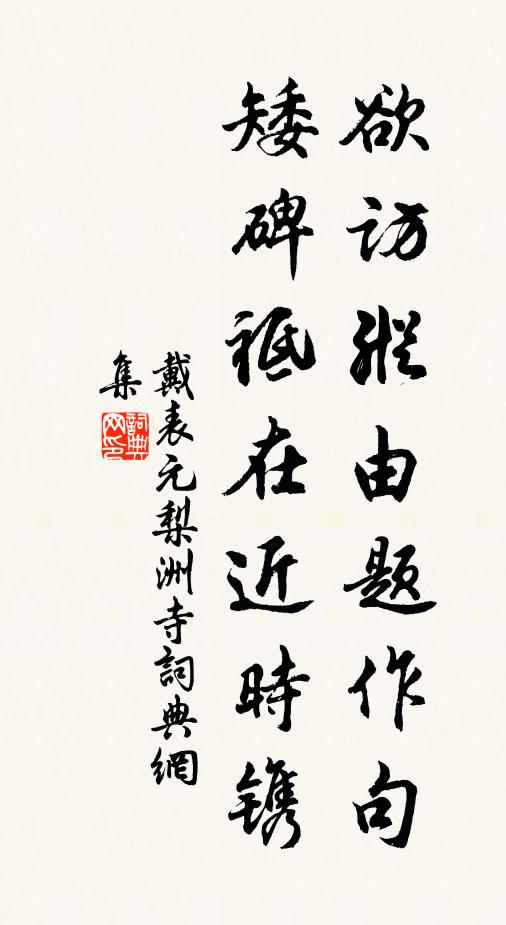 欲訪縱由題作句
矮碑祗在近時鐫
戴表元梨洲寺詞典網
集
詞典
网印